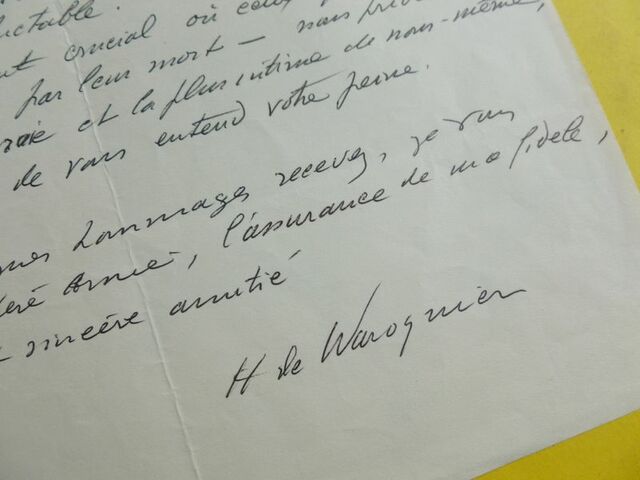 uctable.
nt crucial où ceux
par leur mort — nous
raie et la plus intime de nous-même,
de vous entend votre peine.
mes hommages recevez, je vous
Amie, l'assurance de ma fidèle,
sincère amitié
H de Waroquier